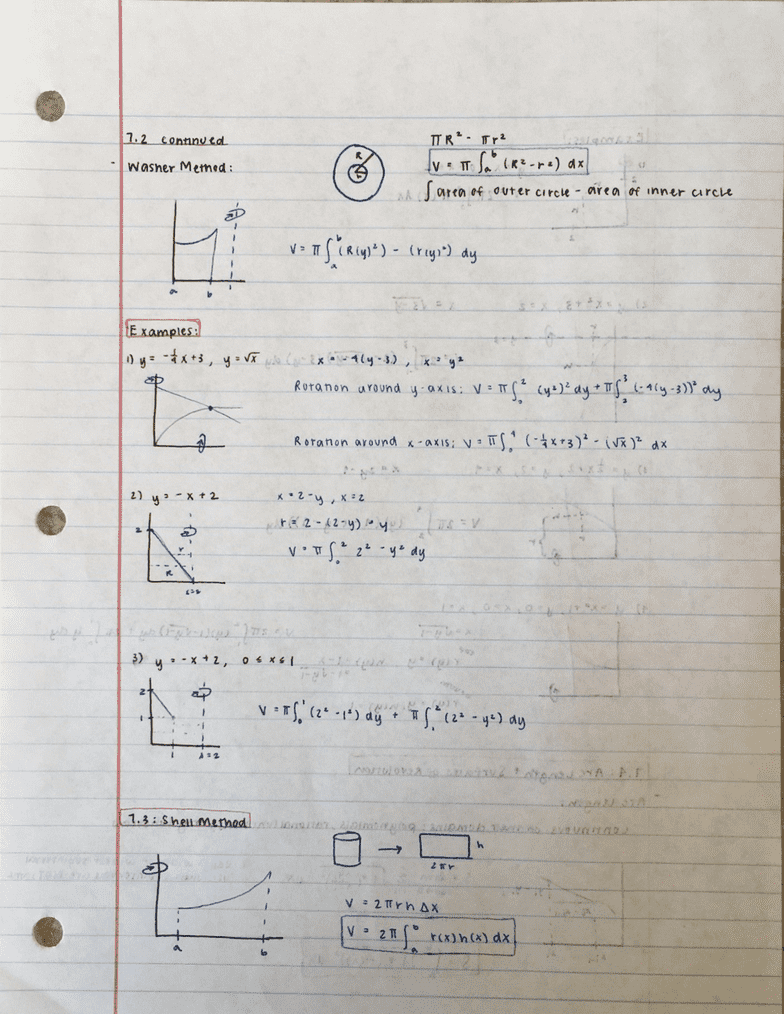 7.2 continued
πR² - πr²
Washer Method:
R
r
V = π ∫ₐᵇ (R² - r²) dx
∫ area of outer circle - area of inner circle
V = π ∫ₐᵇ (R(y)²) - (r(y)²) dy
a b
Examples:
1) y = -¼x + 3, y = √x x = -4(y-3), x = y²
Rotation around y-axis: V = π ∫₀² (y²)² dy + π ∫₂³ (-4(y-3))² dy
Rotation around x-axis: V = π ∫₀⁴ (-¼x+3)² - (√x)² dx
2) y = -x + 2 x = 2-y, x = 2
r = 2 - (2-y) = y
V = π ∫₀² 2² - y² dy
2
r
R
x=2
3) y = -x + 2, 0 ≤ x ≤ 1
2
1
V = π ∫₀¹ (2² - 1²) dy + π ∫₁² (2² - y²) dy
1 x=2
7.3: Shell Method
h
2πr
V = 2πrh Δx
V = 2π ∫ₐᵇ r(x)h(x) dx
a b